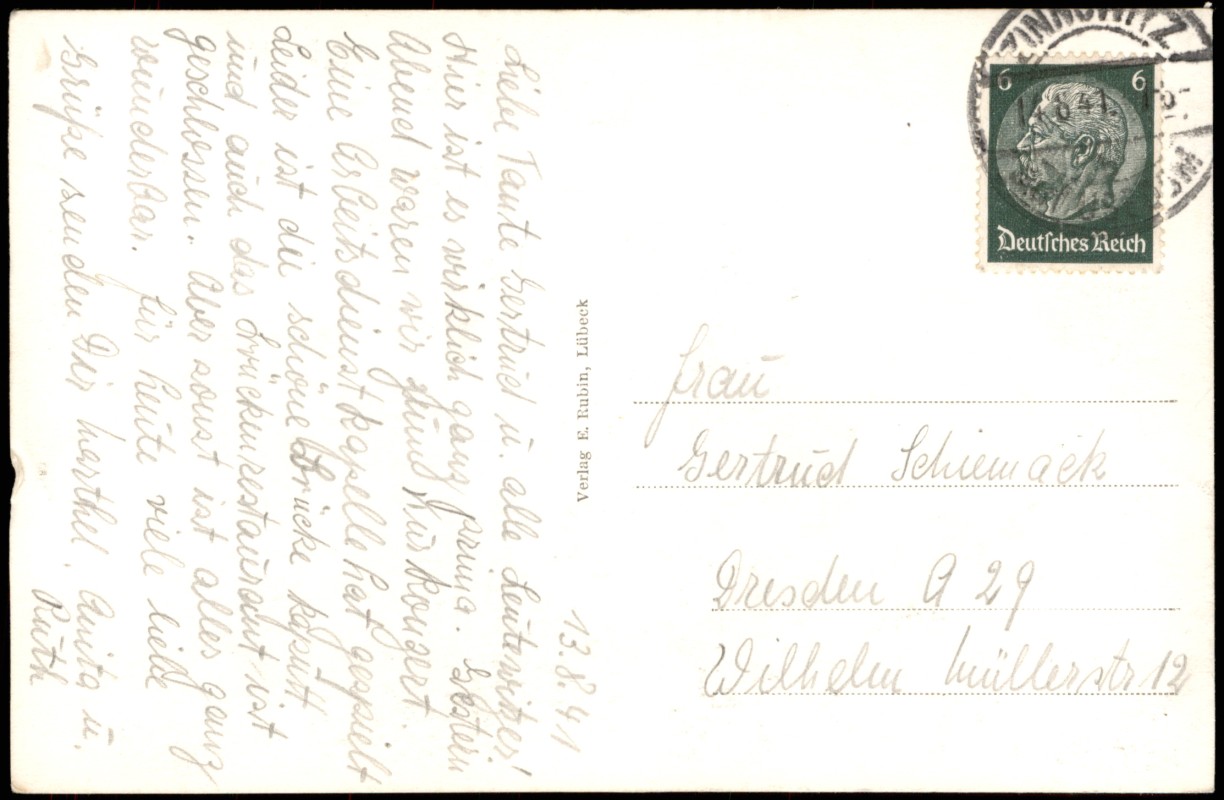 13.8.41
Liebe Tante Gertrud u. alle Leutewitzer!
Hier ist es wirklich ganz prima. Gestern
Abend waren wir zum Kurkonzert.
Eine Arbeitsdienstkapelle hat gespielt
Leider ist die schöne Brücke kaputt
und auch das Brückenrestaurant ist
geschlossen. Aber sonst ist alles ganz
wunderbar. Für heute viele liebe
Grüße senden Dir Anita u.
Ruth
Verlag E. Rubin, Lübeck
ZINNOWITZ
14.8.41
6 6
Deutsches Reich
Frau
Gertrud Schiemack
Dresden A 29
Wilhelm Müllerstr 12